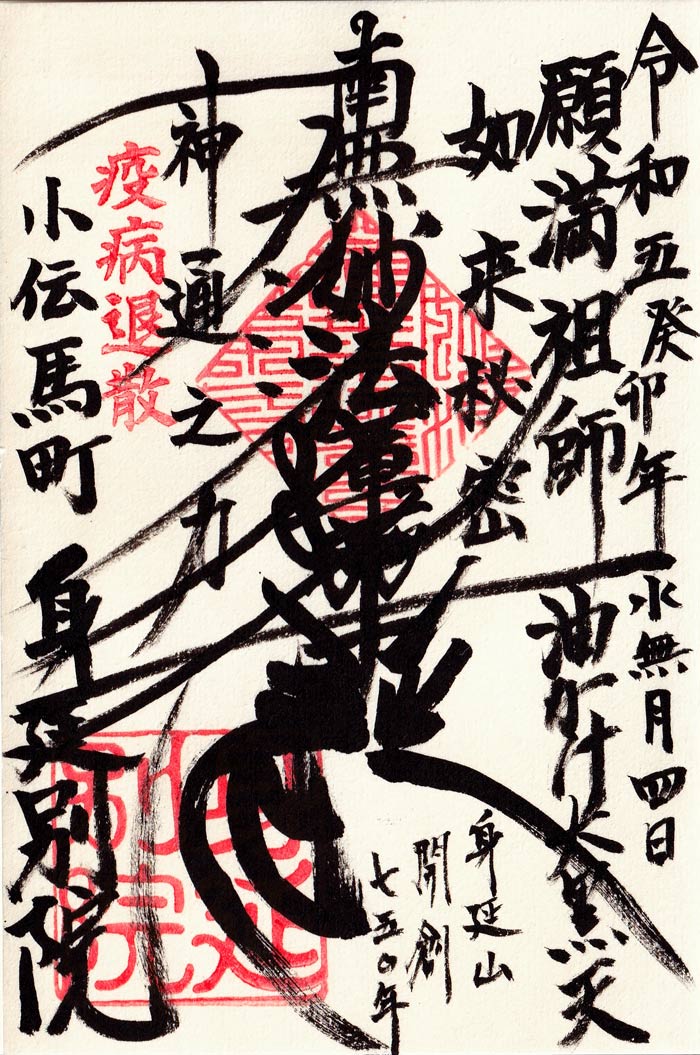 令和五癸卯年 水無月四日
願満祖師 油かけ大黒天
如来秘密
身延山
開創
七五〇年
南無妙法蓮華経
神通之力
疫病退散
小伝馬町
身延別院